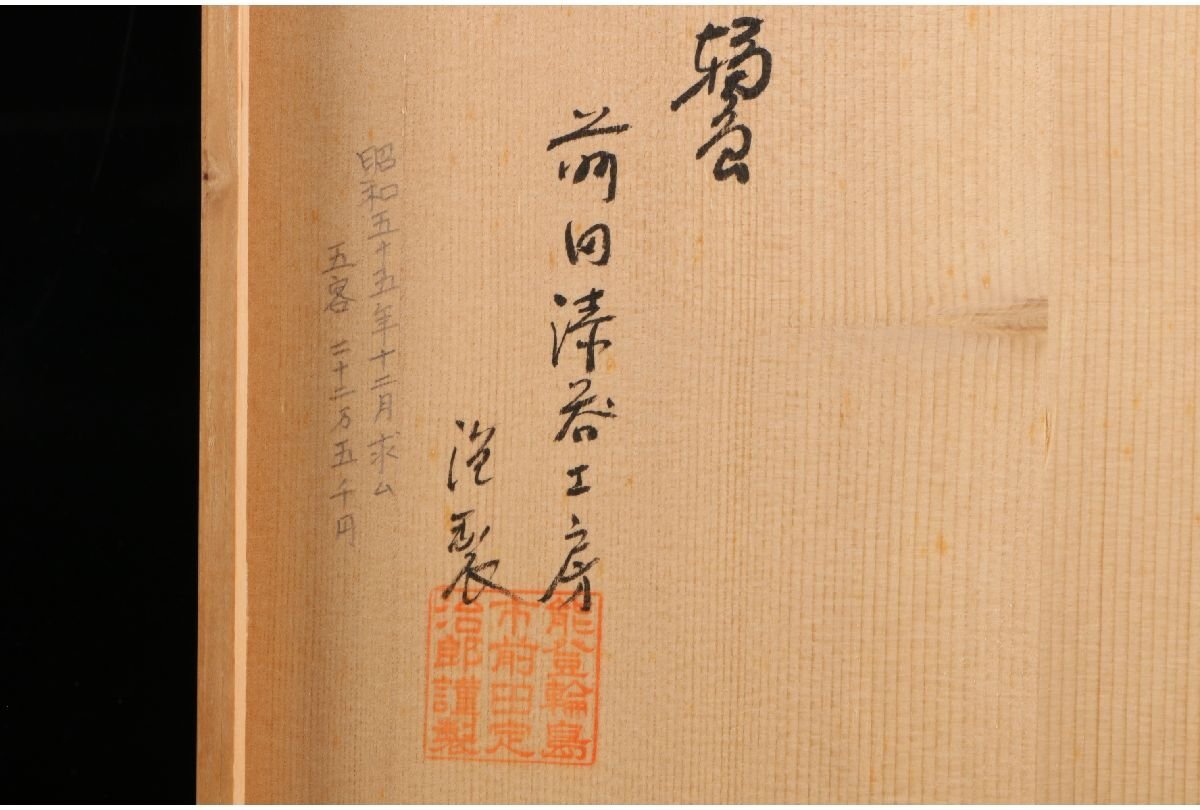 輪島
前田漆器工房
謹製
能登輪島
市前田定
治郎謹製
昭和五十五年十二月求ム
五客 二十二万五千円